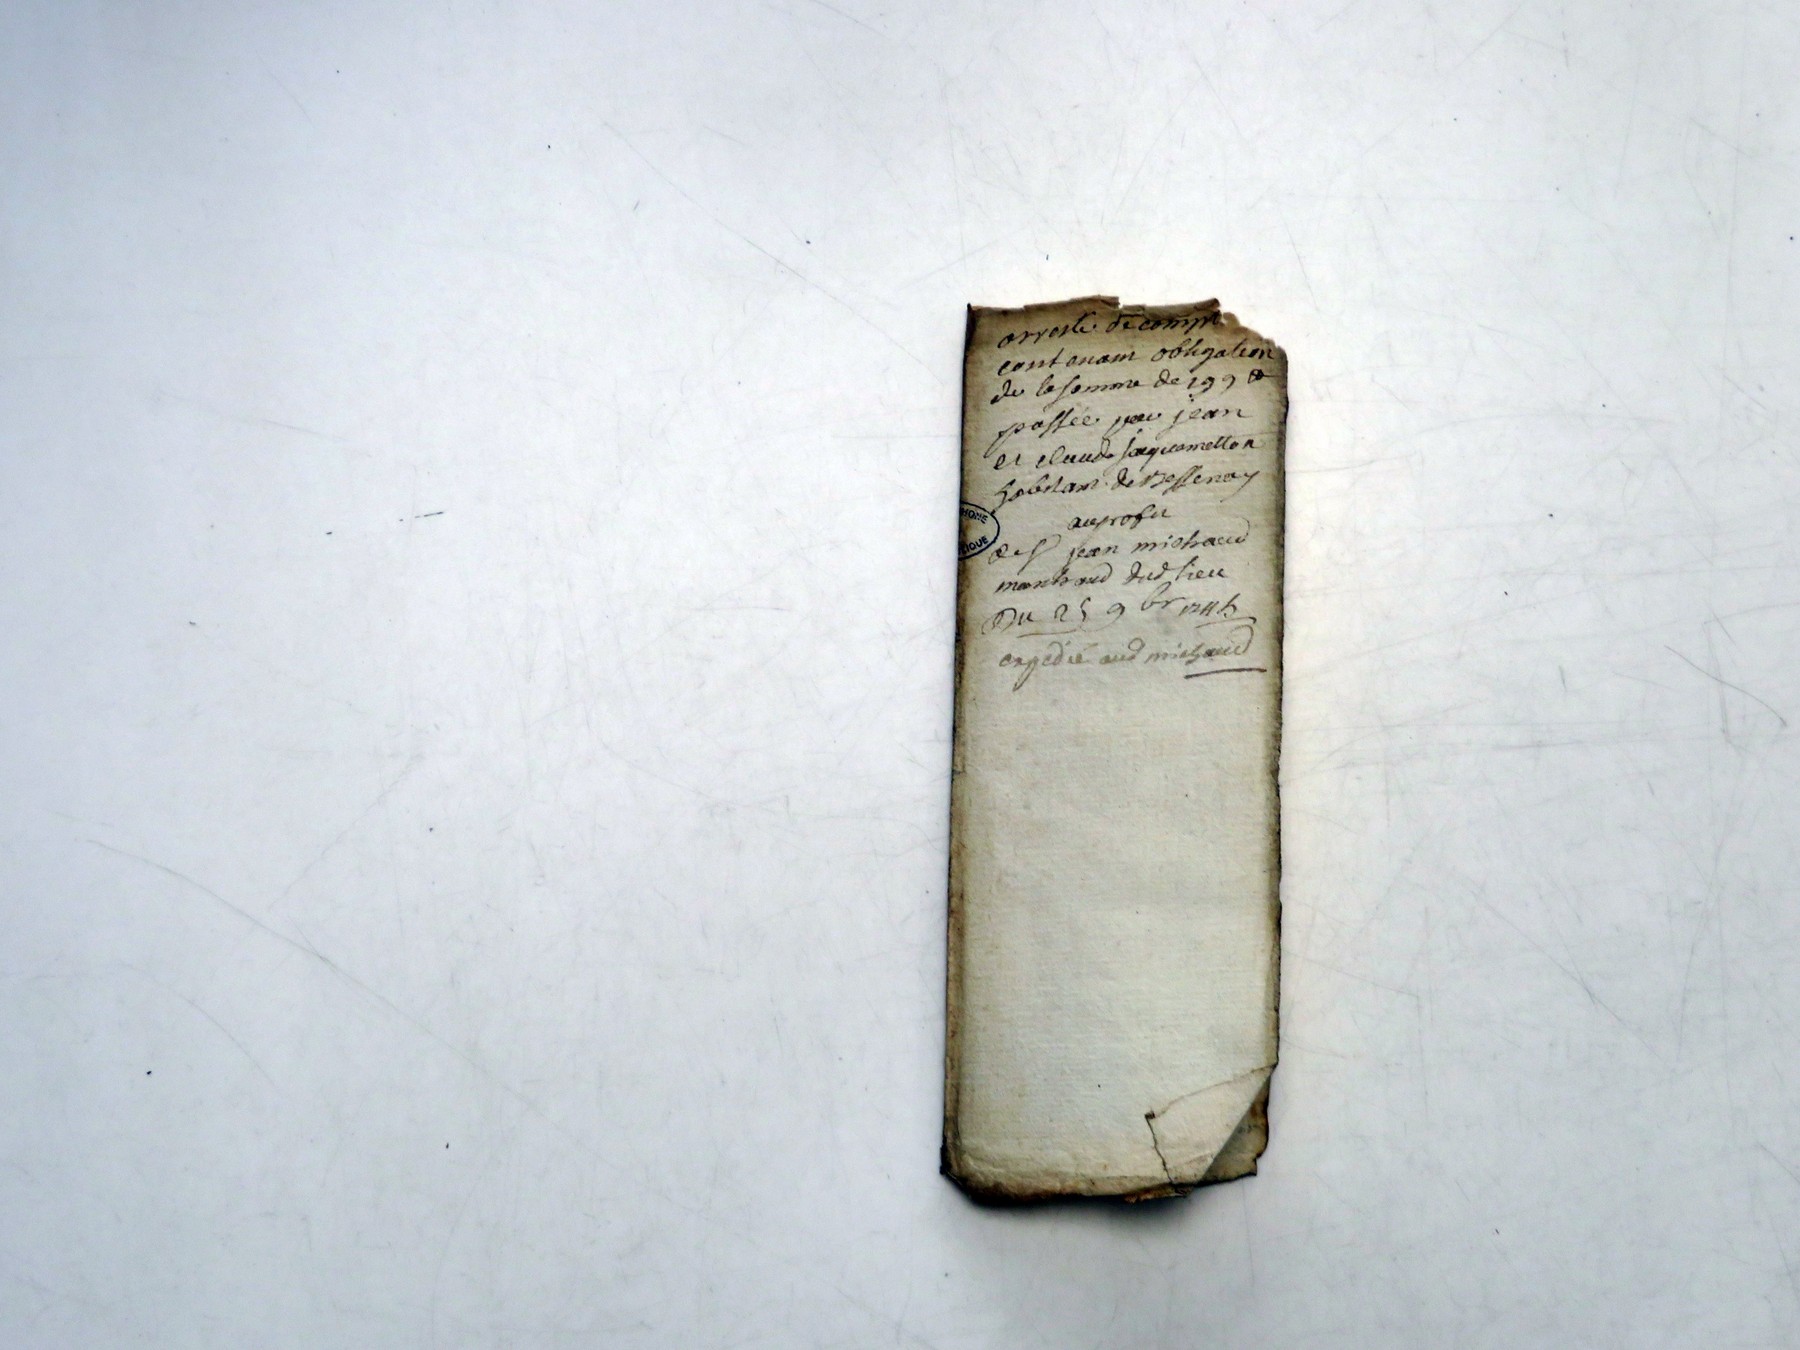 arresté de compt
contenant obligation
de la somme de 199 #
passée par jean
et claude jaquemetton
habitant de Bessenay
au profit
de Sr jean michaud
marchand dud lieu
Du 25 9br 174
expedié aud michaud
HONE
IQUE